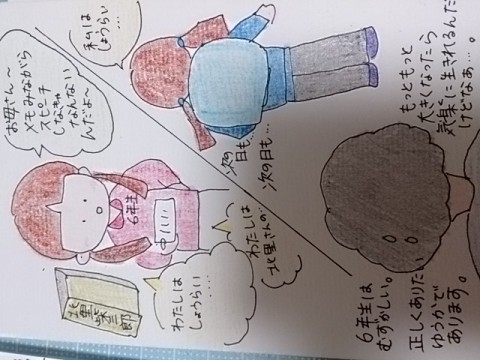 お母さん～
メモみながら
スピーチ
しなきゃ
なんない
んだよ～
6年生
北里柴三郎
わたしは
しょうらい
……
わたしは
北里さんの…
私は
しょうらい
…
次の日も…
次の日も…
もっともっと
大きくなったら
気楽に生きれるんだ
けどなぁ…。
6年生は
むずかしい。
正しくありたい
ゆうかで
あります。